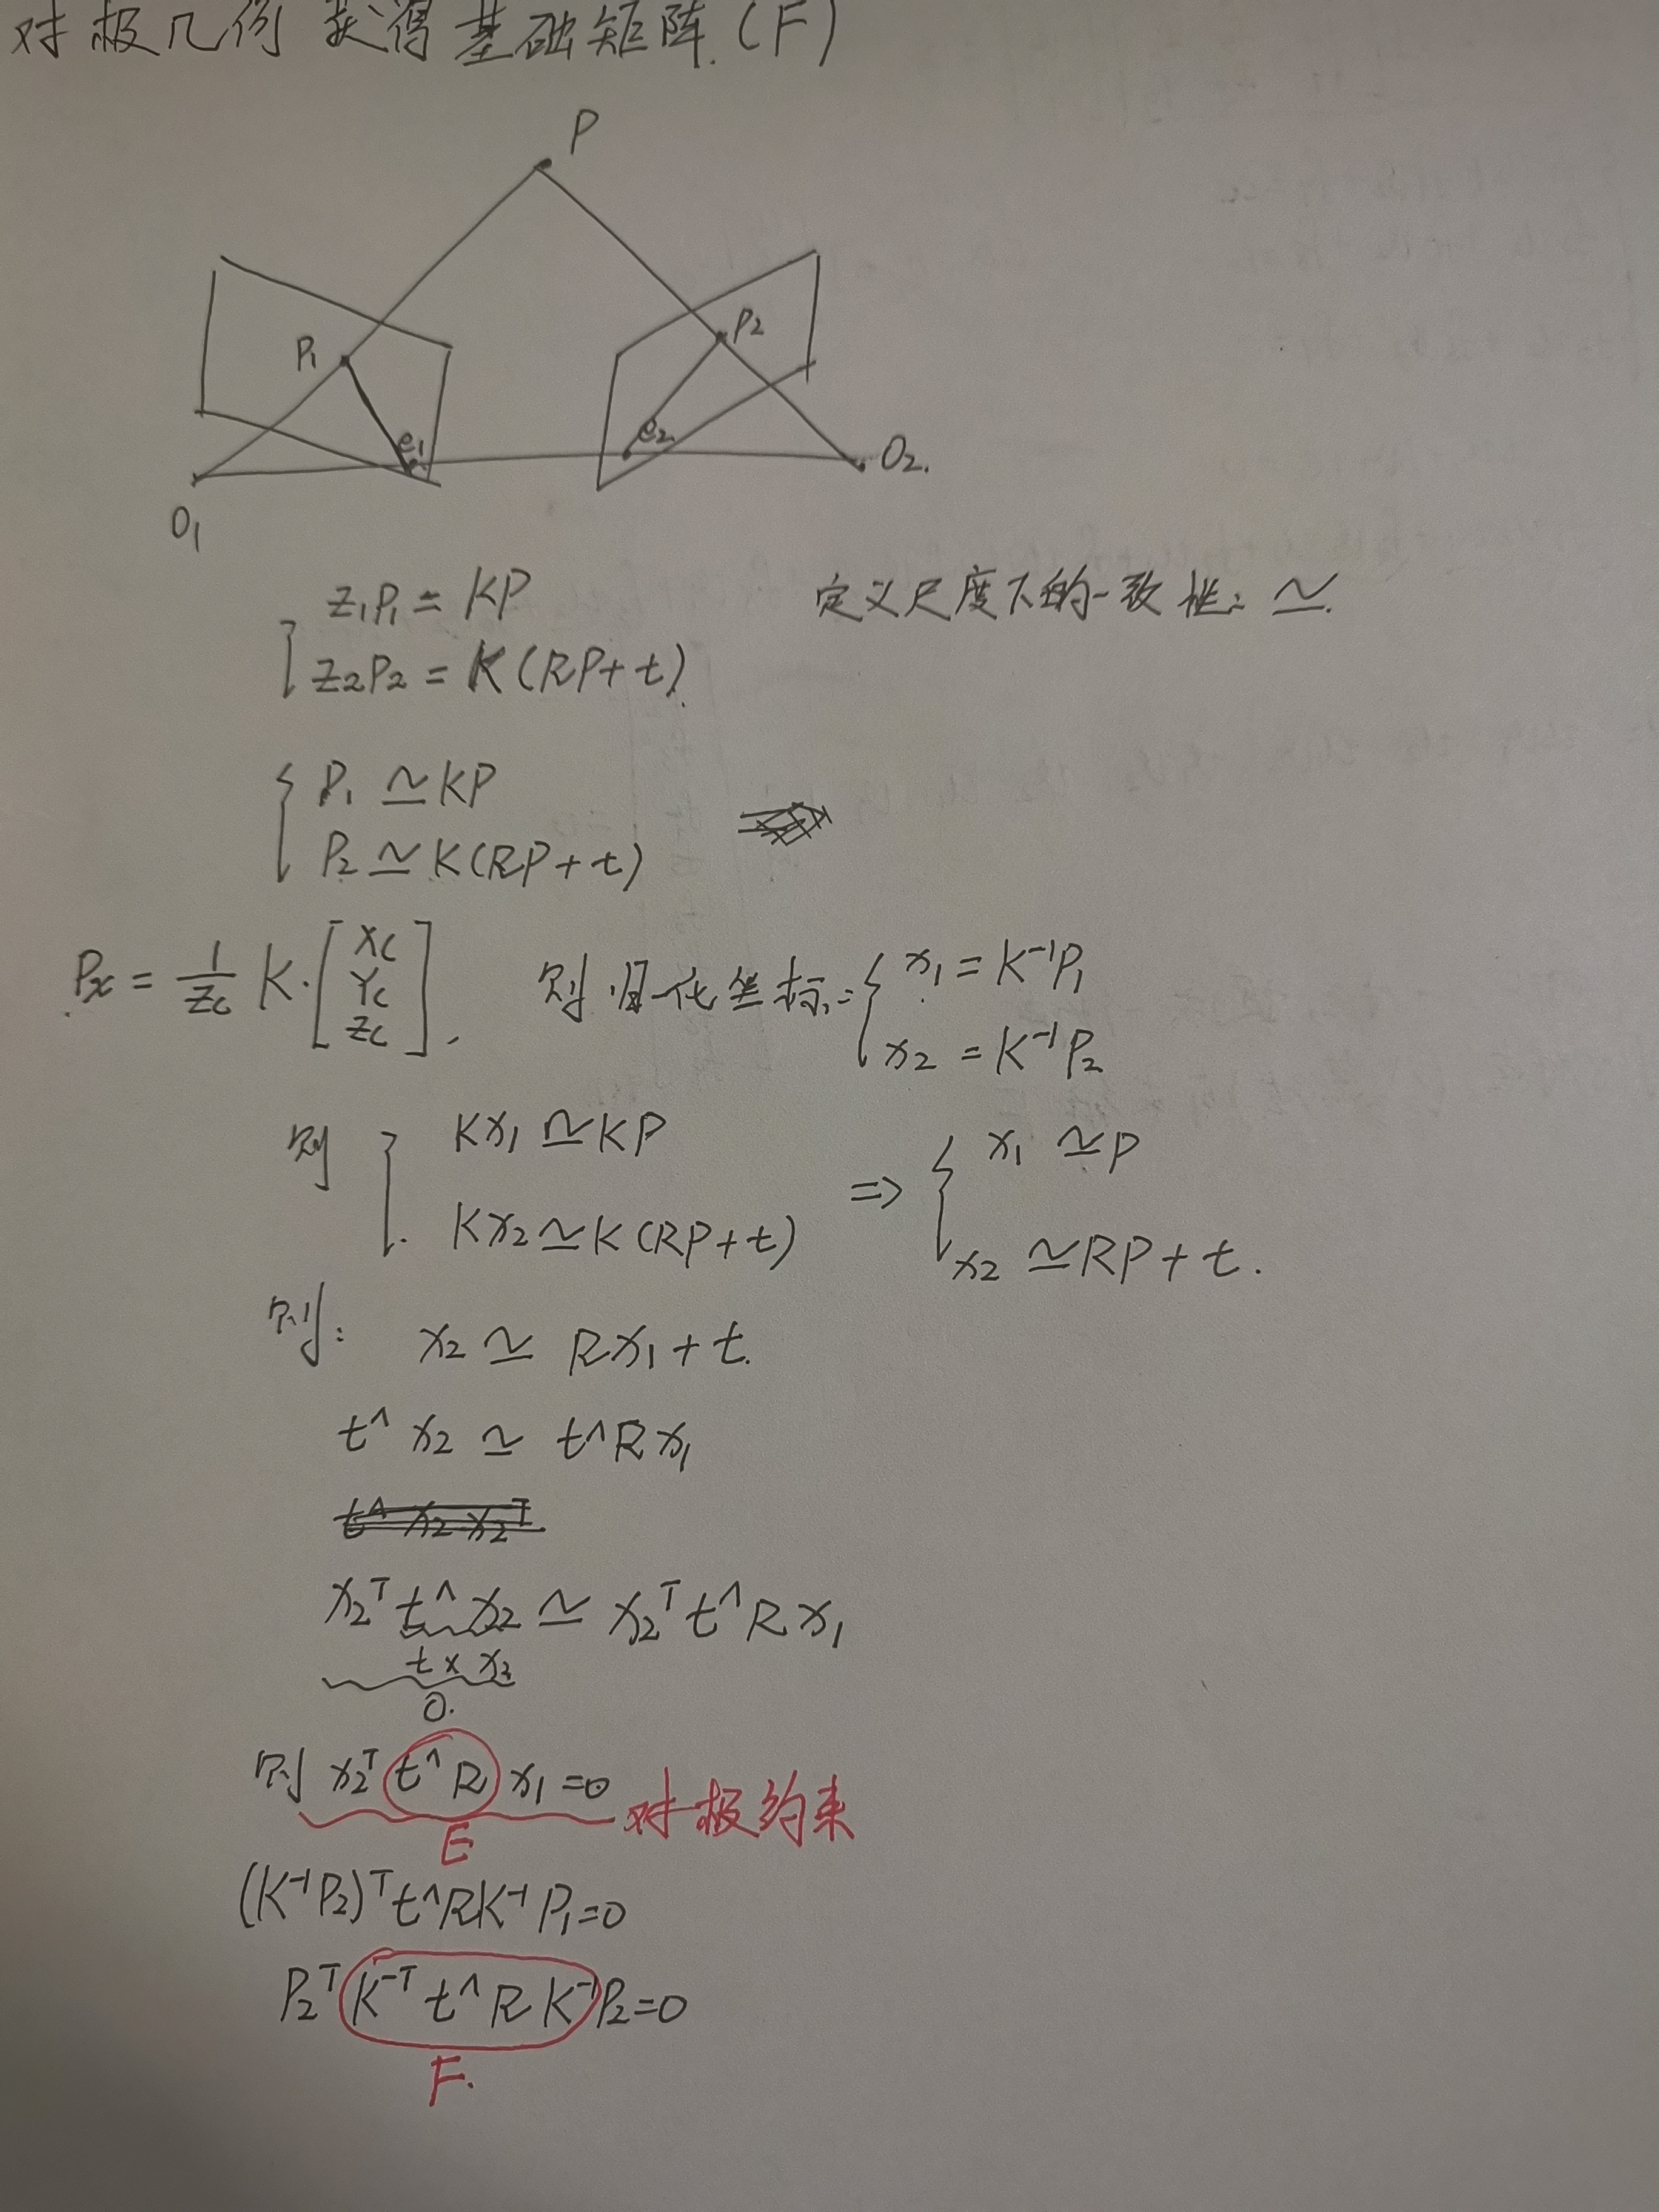 对极几何 获得基础矩阵.(F)
P
P₁
P₂
e₁
e₂
O₁
O₂.
z₁P₁ = KP
定义尺度下的一致性: ≃.
z₂P₂ = K(RP+t)
P₁ ≃ KP
P₂ ≃ K(RP+t)
Pₓ = 1/Zc K·[Xc Yc Zc],
则归一化坐标: x₁ = K⁻¹P₁
x₂ = K⁻¹P₂
则 Kx₁ ≃ KP
Kx₂ ≃ K(RP+t)
⇒ x₁ ≃ P
x₂ ≃ RP+t.
则: x₂ ≃ Rx₁+t.
t^ x₂ ≃ t^Rx₁
t^ x₂ x₂ᵀ
x₂ᵀ t^ x₂ ≃ x₂ᵀ t^ R x₁
t × x₂
0.
则 x₂ᵀ t^ R x₁ = 0 对极约束
E
(K⁻¹P₂)ᵀ t^RK⁻¹P₁=0
P₂ᵀ K⁻ᵀ t^ R K⁻¹ P₂=0
F.